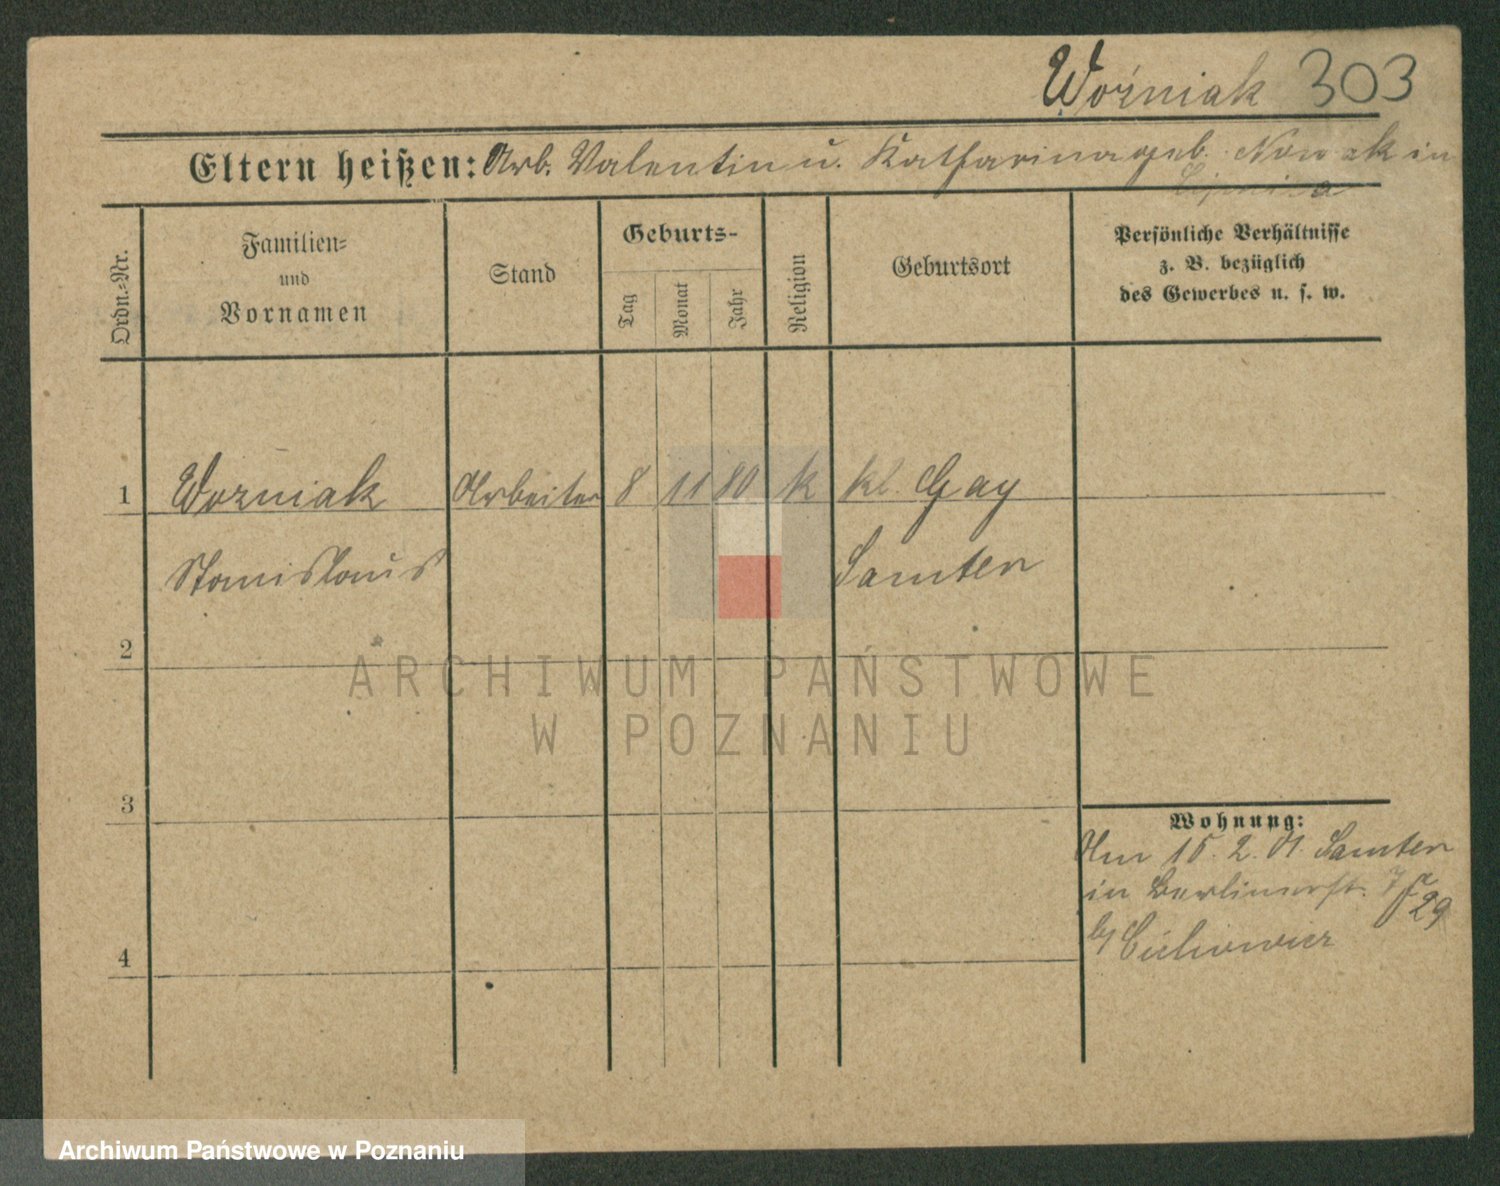 Woźniak 303
Eltern heißen: Arb. Valentin u. Katharina geb. Nowak in
Ordn.-Nr.
Familien-
und
Vornamen
Stand
Geburts-
Tag
Monat
Jahr
Religion
Geburtsort
Persönliche Verhältnisse
z. B. bezüglich
des Gewerbes u. s. w.
1 Wozniak Arbeiter 8 11 80 k kl. Gay
Stanislaus Samter
2
ARCHIWUM PAŃSTWOWE
W POZNANIU
3
Wohnung:
Am 15. 2. 01. Samter
in Berlinerstr.
29
4
Archiwum Państwowe w Poznaniu